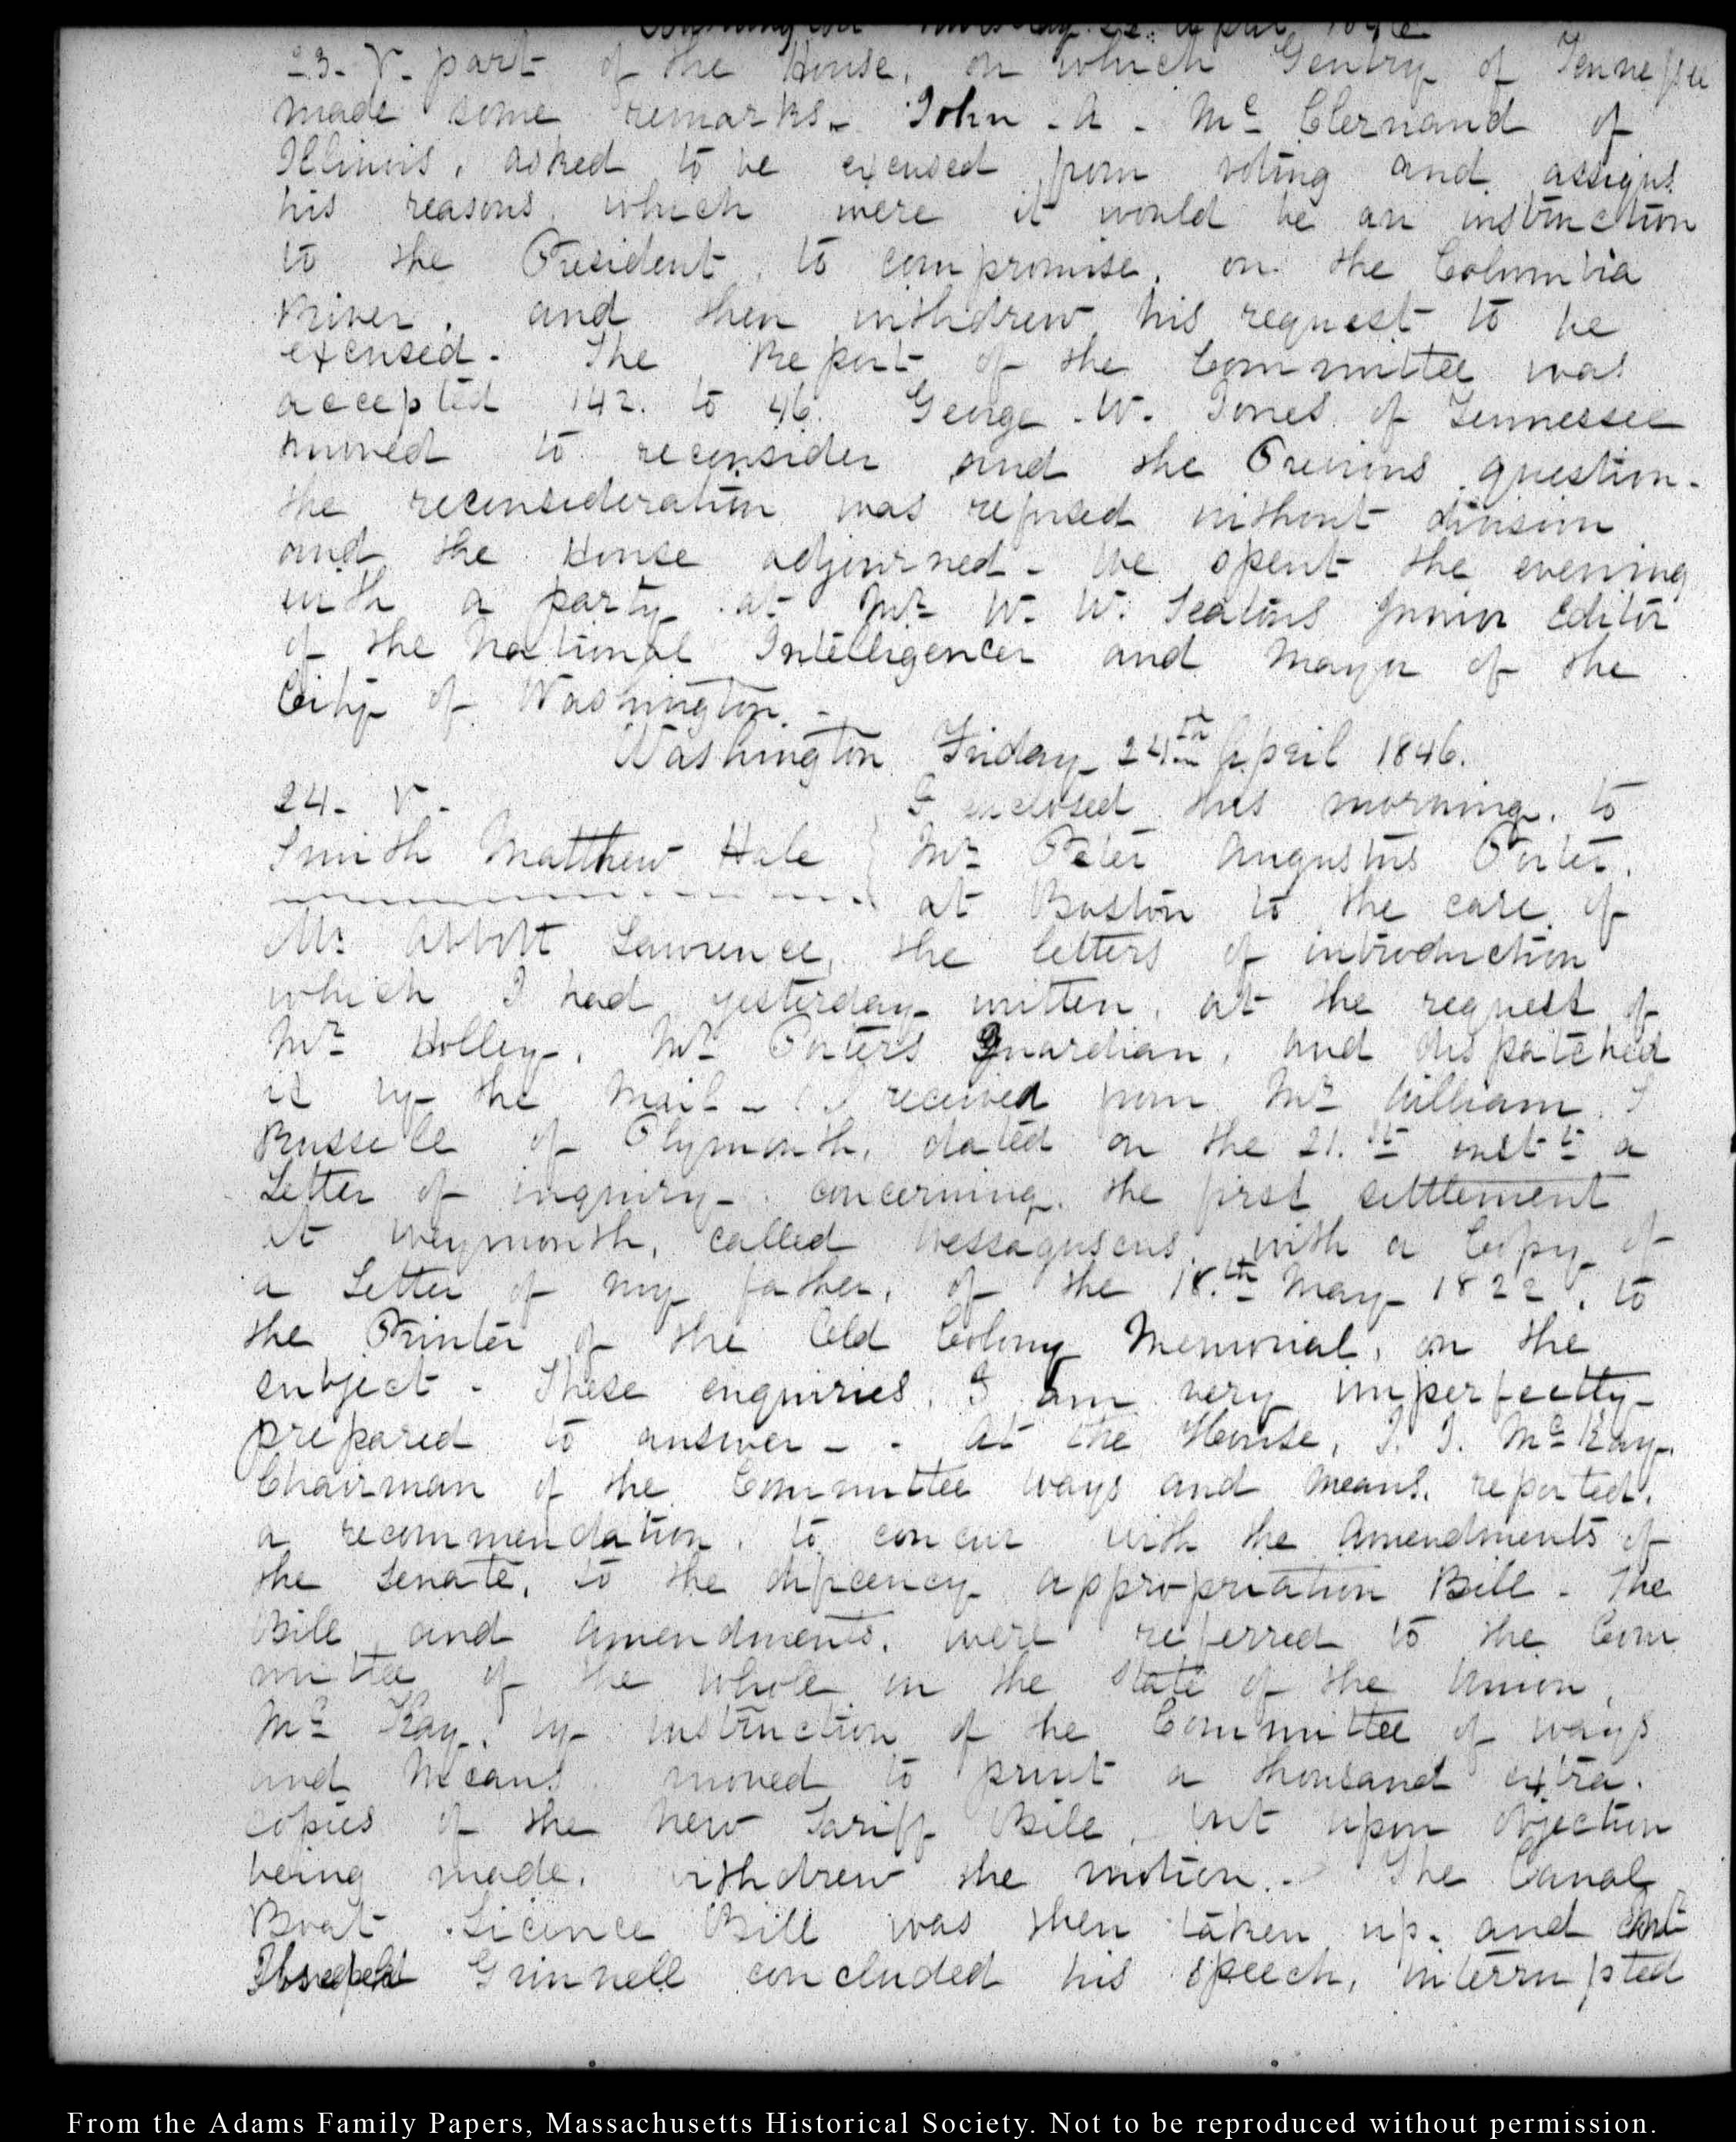 Washington Thursday 23. April 1846
23. V. part of the House, on which Gentry of Tennessee
made some remarks. John A. Mc. Clernand of
Illinois, asked to be excused from voting and assigns
his reasons, which were it would be an instruction
to the President, to compromise, on the Columbia
River, and then withdrew his request to be
excused. The Report of the Committee was
accepted 142. to 46. George W. Jones of Tennessee
moved to reconsider and the Previous question.
the reconsideration was refused without division
and the House adjourned - We spent the evening
with a party at Mr. W. W. Seatons junior Editor
of the National Intelligencer and Mayor of the
City of Washington. -
Washington Friday 24th. April 1846.
24. V. I enclosed this morning, to
Smith Matthew Hale } Mr. Peter Augustus Porter,
at Boston to the care of
Mr. Abbott Lawrence, the letters of introduction
which I had yesterday written, at the request of
Mr. Holley, Mr. Porters Guardian, and dispatched
it by the Mail - I received from Mr. William S
Russell of Plymouth, dated on the 21.st instt. a
Letter of inquiry concerning the first settlement
at Weymouth, called Wessaguscus, with a Copy of
a Letter of my father, of the 18.th May 1822, to
the Printer of the Old Colony Memorial, on the
subject - These enquiries, I am very imperfectly
prepared to answer - . At the House, J. J. Mc. Kay,
Chairman of the Committee ways and means, reported,
a recommendation, to concur with the amendments of
the Senate, to the deficiency appropriation Bill - The
Bill and amendments, were referred to the Com
mittee of the whole on the State of the Union,
Mc. Kay, by instruction of the Committee of ways
and Means, moved to print a thousand extra.
copies of the New Tariff Bill, but upon objection
being made, withdrew the motion. - The Canal
Boat Licence Bill was then taken up, and
Grinnell concluded his speech, interrupted
From the Adams Family Papers, Massachusetts Historical Society. Not to be reproduced without permission.